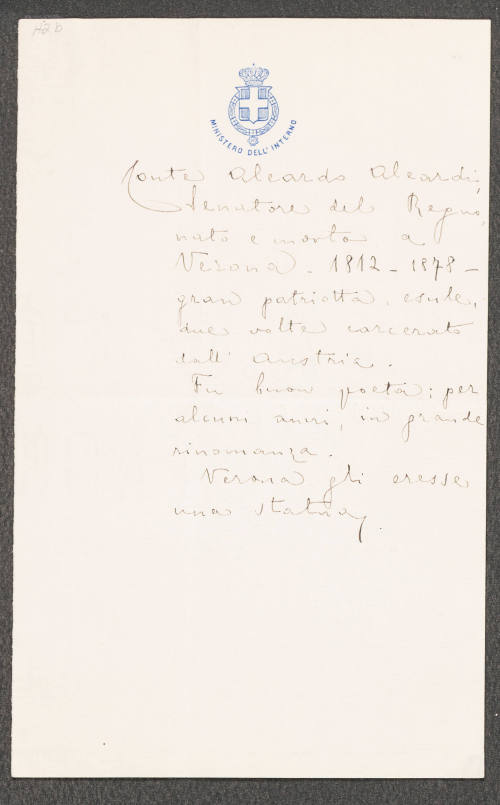 H2b
MINISTERO DELL'INTERNO
Conte Aleardo Aleardi,
Senatore del Regno,
nato e morto a
Verona. 1812 - 1878 -
gran patriotta, esule,
due volte carcerato
dall' Austria.
Fu buon poeta; per
alcuni anni, in grande
rinomanza.
Verona gli eresse
una statua.